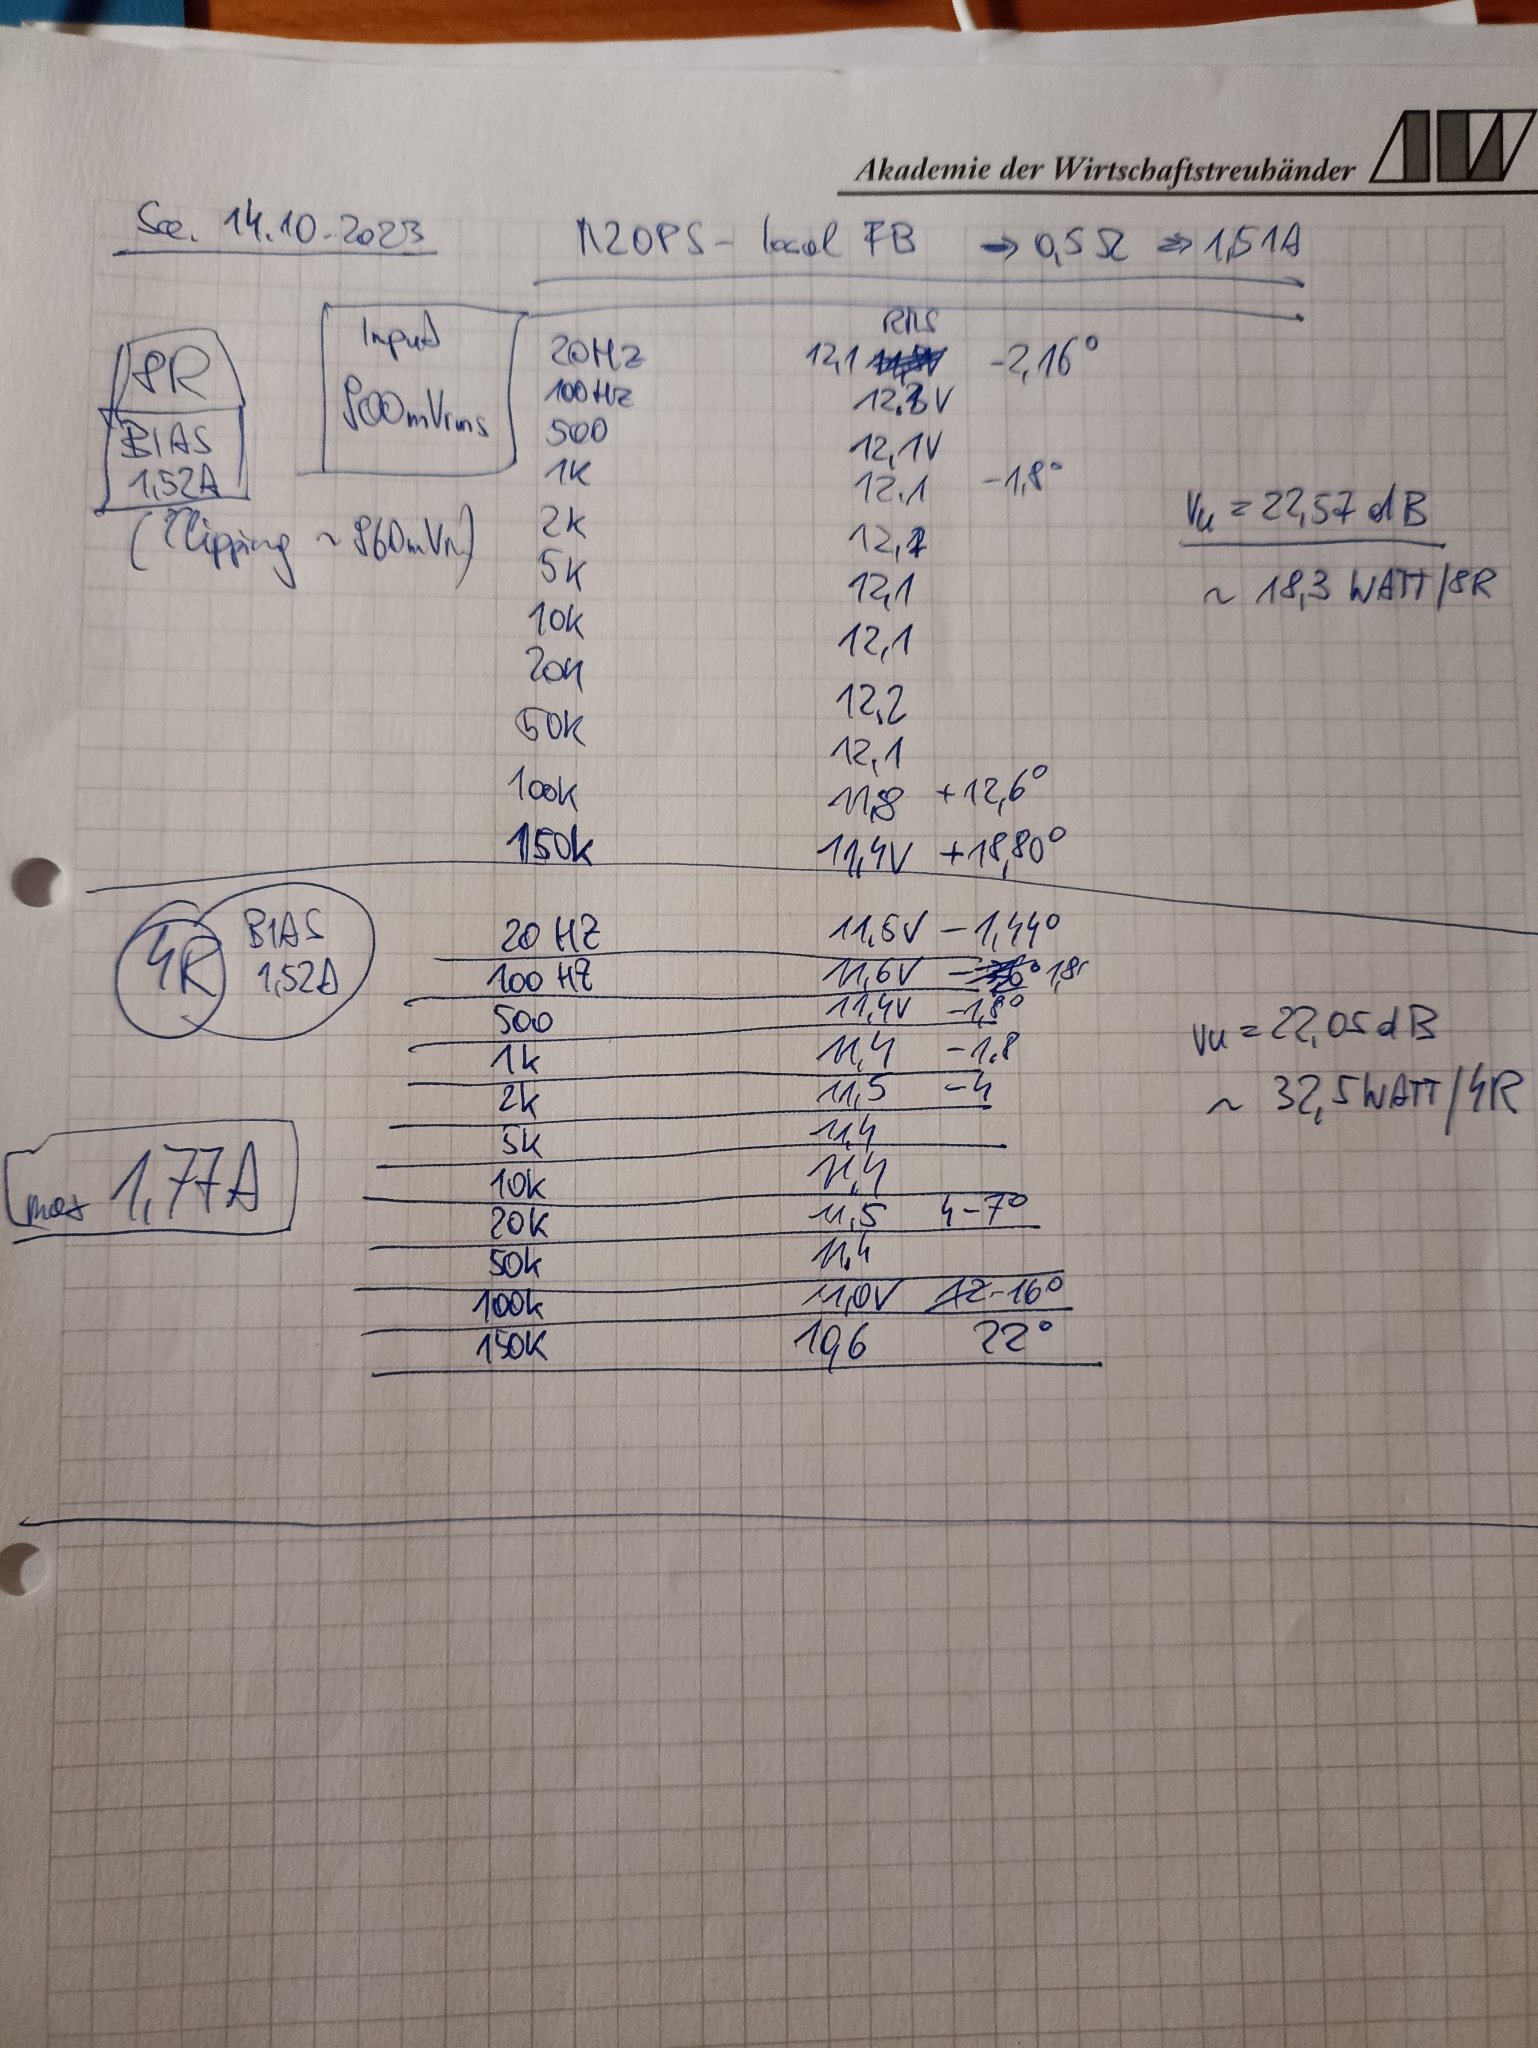 Akademie der Wirtschaftstreuhänder
14.10.2023 local FB → 0,5Ω ⇒ 1,51A
8R
BIAS
1,52A
(Clipping ~ 960mVr)
Input
900mVrms
RMS
20Hz 12,1 -2,16°
100Hz V
500 12,1V
1K 12,1 -1,8°
2K
5K 12,1
10K 12,1
20K 12,2
50K 12,1
100K 11,8 +12,6°
150K 11,4V +18,80°
Vu = 22,57 dB
~ 18,3 WATT/8R
4R BIAS
1,52A
20 HZ 11,6V -1,44°
100 HZ 11,6V - 1,8°
500 11,4V -1,8°
1K 11,4 -1,8
2K 11,5 -4
5K 11,4
10K 11,4
20K 11,5 4-7°
50K 11,4
100K 11,0V 12-16°
150K 10,6 22°
Vu = 22,05 dB
~ 32,5 WATT/4R
max 1,77A